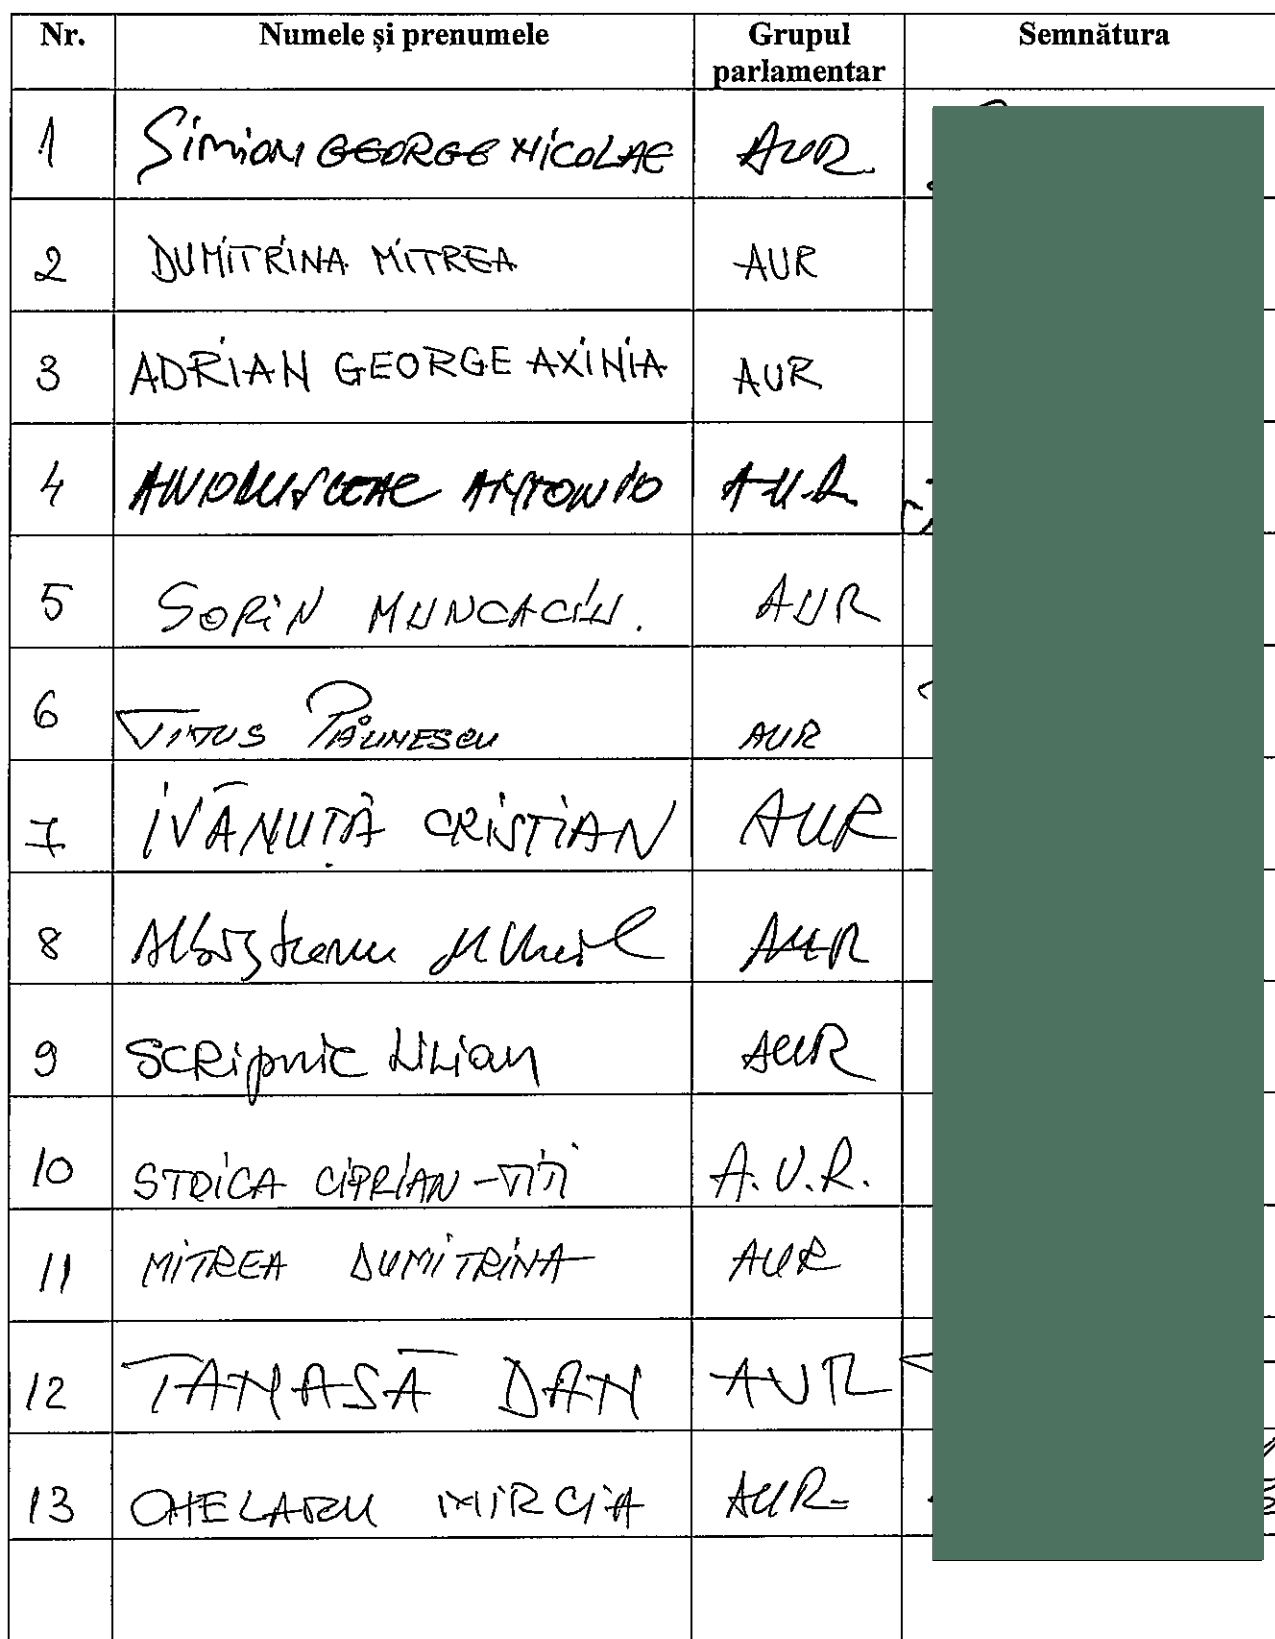 Nr. Numele și prenumele Grupul parlamentar Semnătura
1 Simion GEORGE NICOLAE AUR
2 DUMITRINA MITREA AUR
3 ADRIAN GEORGE AXINIA AUR
4 ANDRUSCEAC ANTONIO A.U.R.
5 SORIN MUNCACIU. AUR
6 TITUS PĂUNESCU AUR
7 IVĂNUȚĂ CRISTIAN AUR
8 Albișteanu Mihail AUR
9 SCRipnic Lilian AUR
10 STOICA CIPRIAN-TITI A.U.R.
11 MITREA DUMITRINA AUR
12 TANASĂ DAN AUR
13 CHELARU MIRCIA AUR